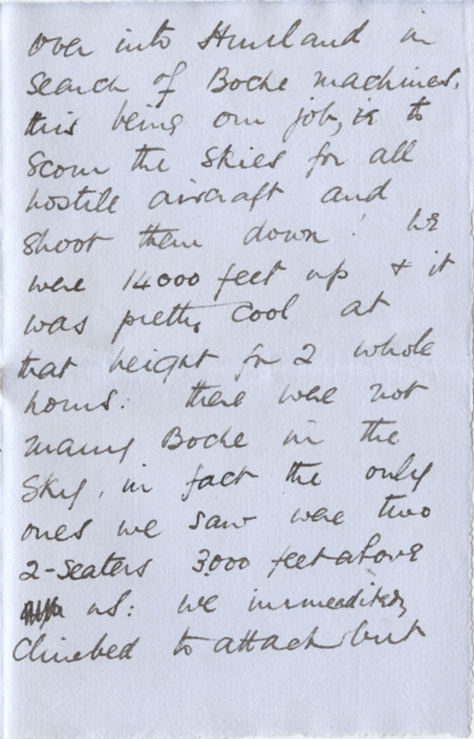 over into Hunland in
search of Boche machines.
this being our job, ie to
scour the skies for all
hostile aircraft and
shoot them down! We
were 14000 feet up + it
was pretty cool at
that height for 2 whole
hours: there were not
many Boche in the
sky, in fact the only
ones we saw were two
2-seaters 3000 feet above
us: we immediately
climbed to attack but